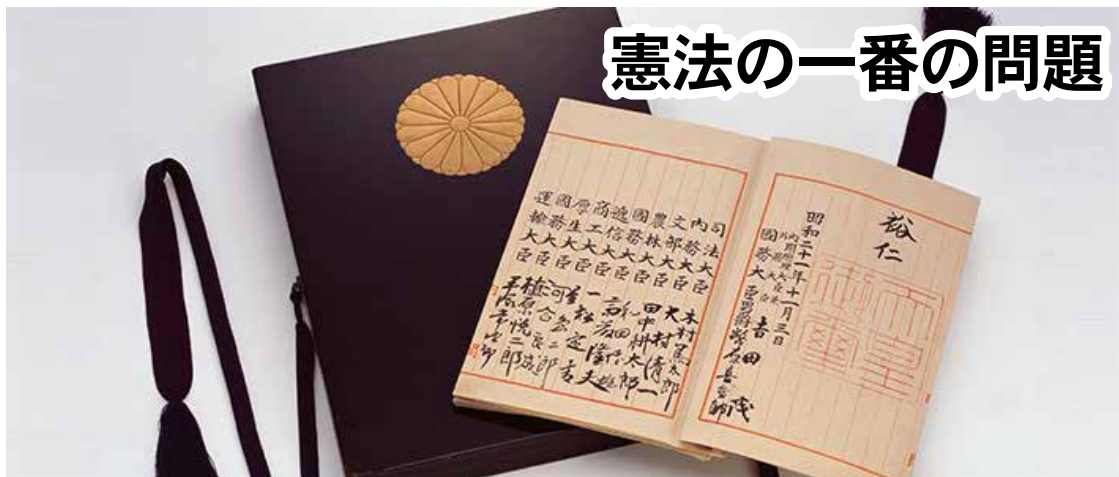 憲法の一番の問題
裕仁
天皇御璽
昭和二十一年十一月三日
外務大臣 吉田茂
國務大臣 男爵 幣原喜重郎
司法大臣 木村篤太郎
内務大臣 大村清一
文部大臣 田中耕太郎
農林大臣 和田
國務大臣 隆夫
逓信大臣 一松定吉
商工大臣 二郎
厚生大臣 河合良成
國務大臣 植原悦二郎
運輸大臣 平塚常次郎